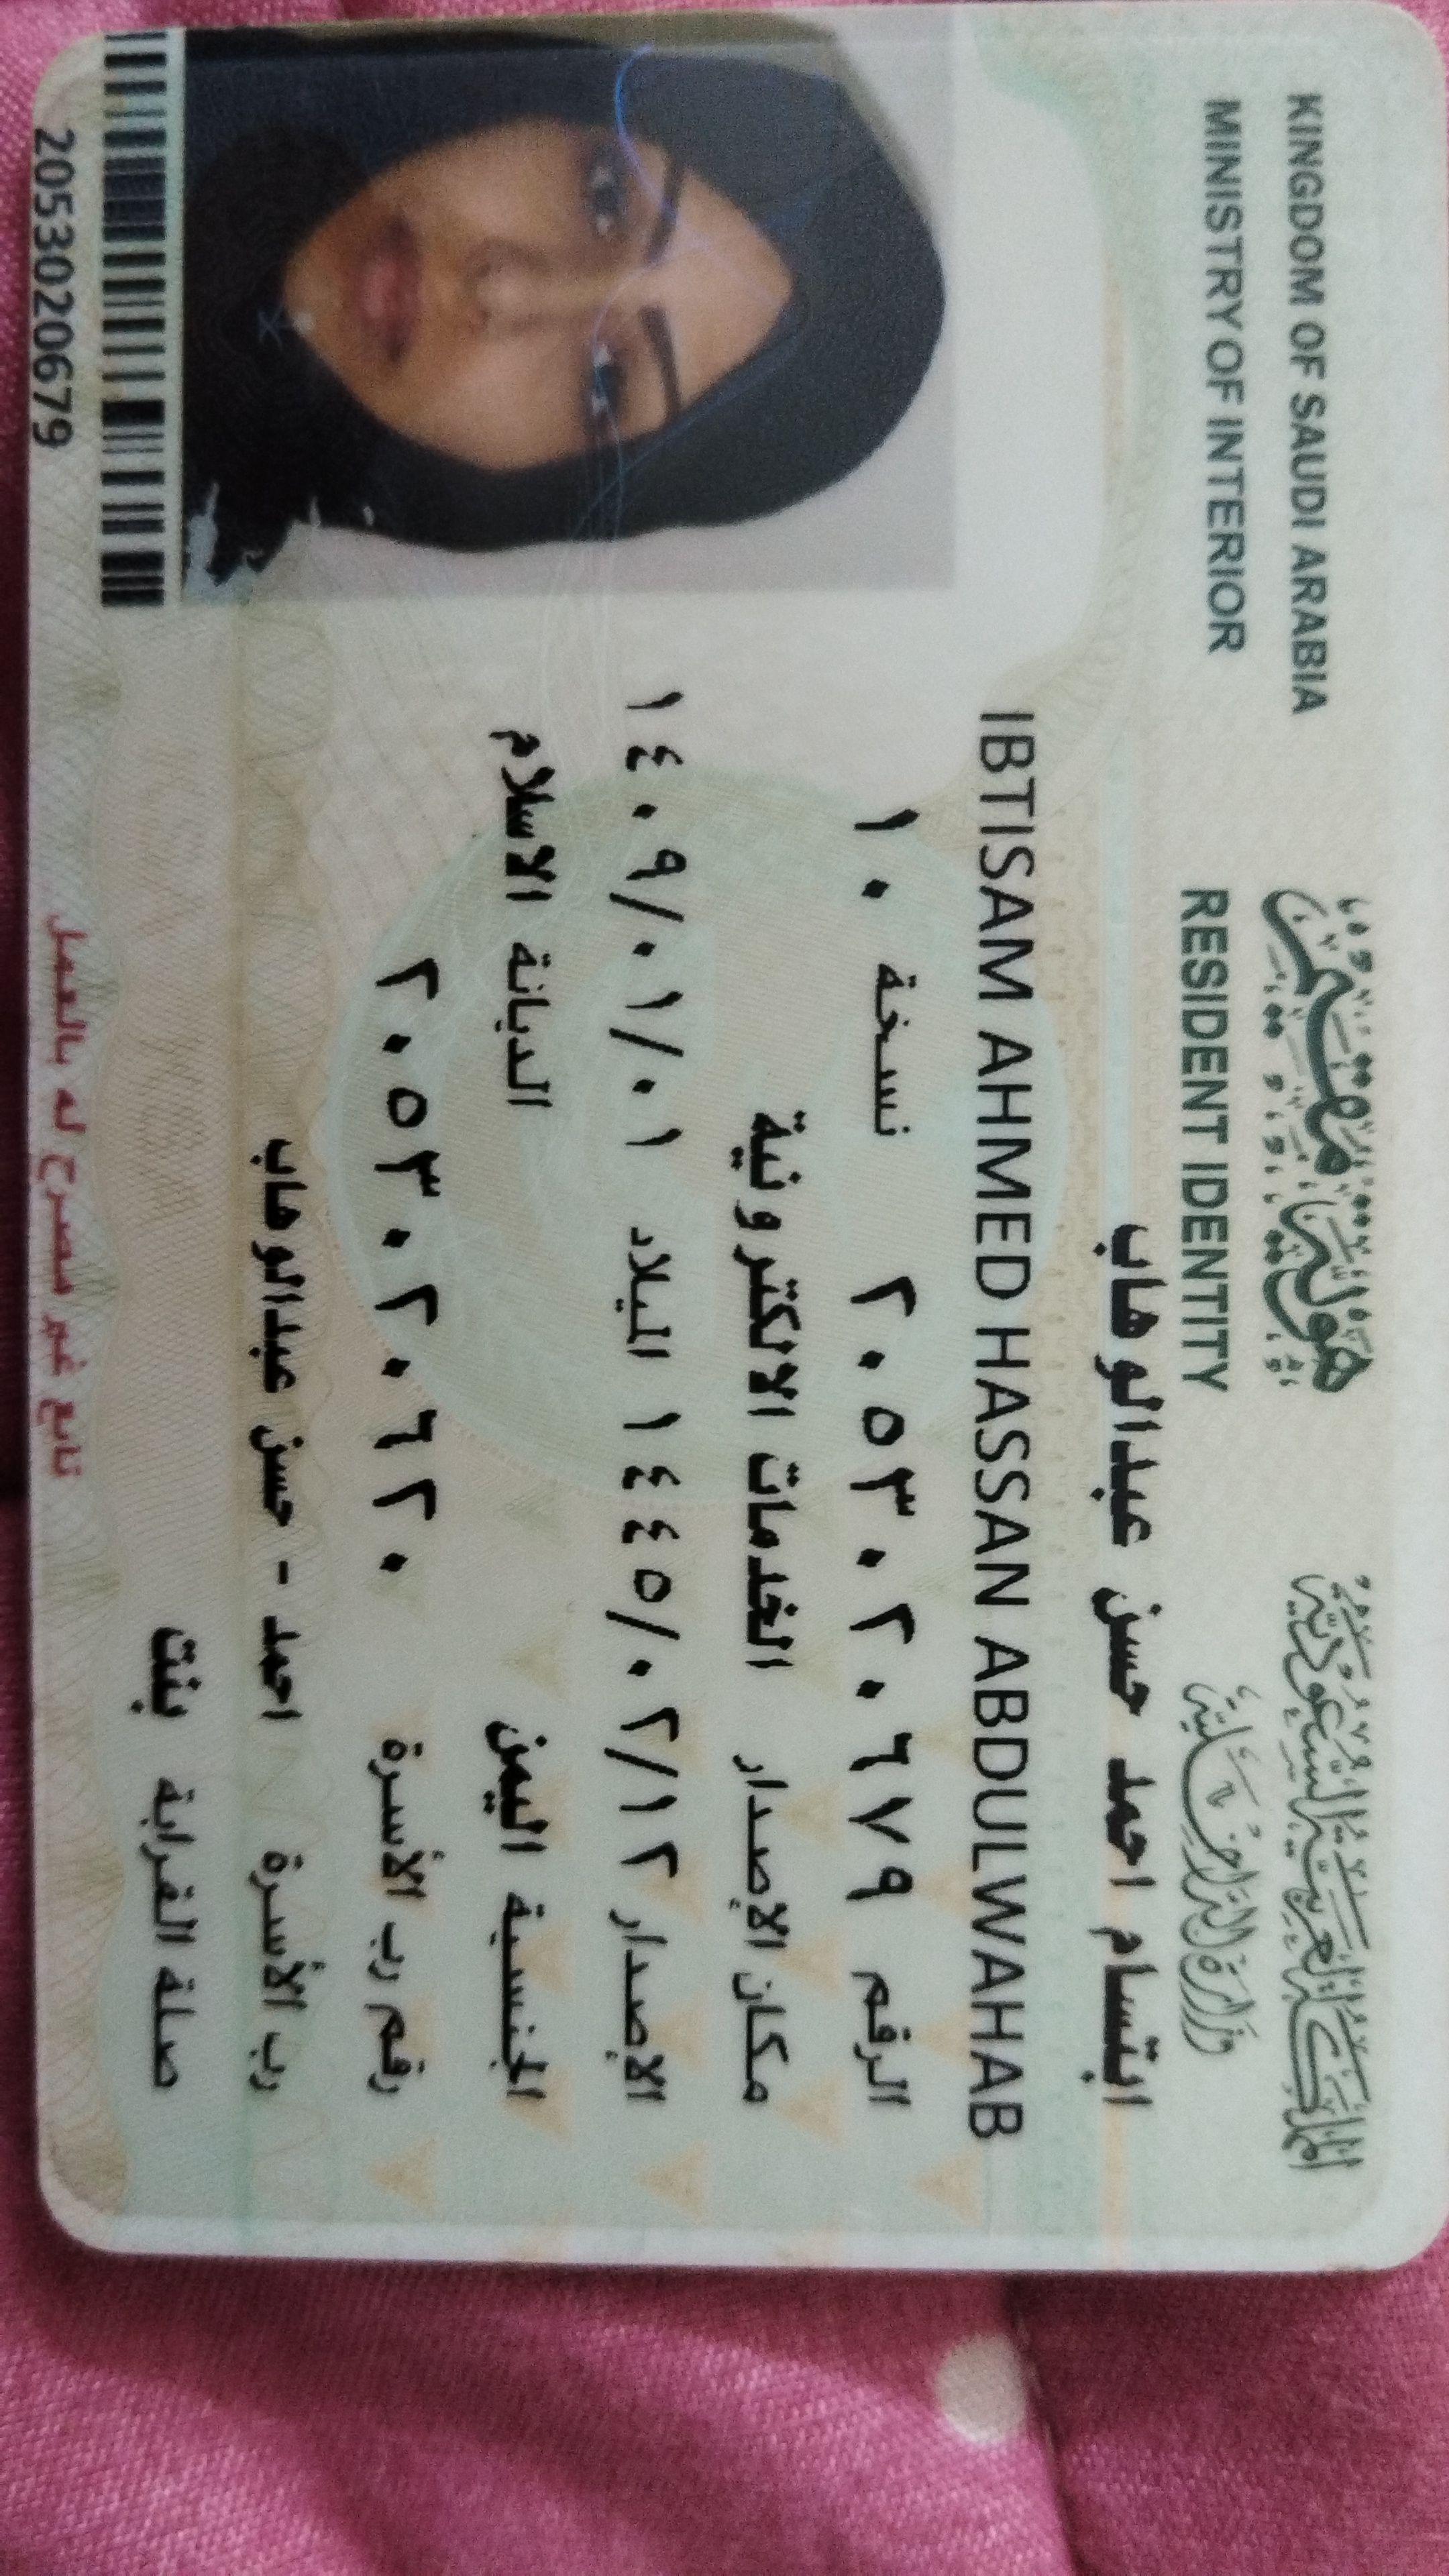 المملكة العربية السعودية
وزارة الداخلية
هوية مقيم
RESIDENT IDENTITY
KINGDOM OF SAUDI ARABIA
MINISTRY OF INTERIOR
ابتسام احمد حسن عبدالوهاب
IBTISAM AHMED HASSAN ABDULWAHAB
الرقم ٢٠٥٣٠٢٠٦٧٩ نسخة ١٠
مكان الإصدار الخدمات الالكترونية
الإصدار ١٤٤٥/٠٢/١٢ الميلاد ١٤٠٩/٠١/٠١
الجنسية اليمن الديانة الاسلام
رقم رب الأسرة ٢٠٥٣٠٢٠٦٢٠
رب الأسرة احمد - حسن عبدالوهاب
صلة القرابة بنت
تابع غير مصرح له بالعمل
2053020679